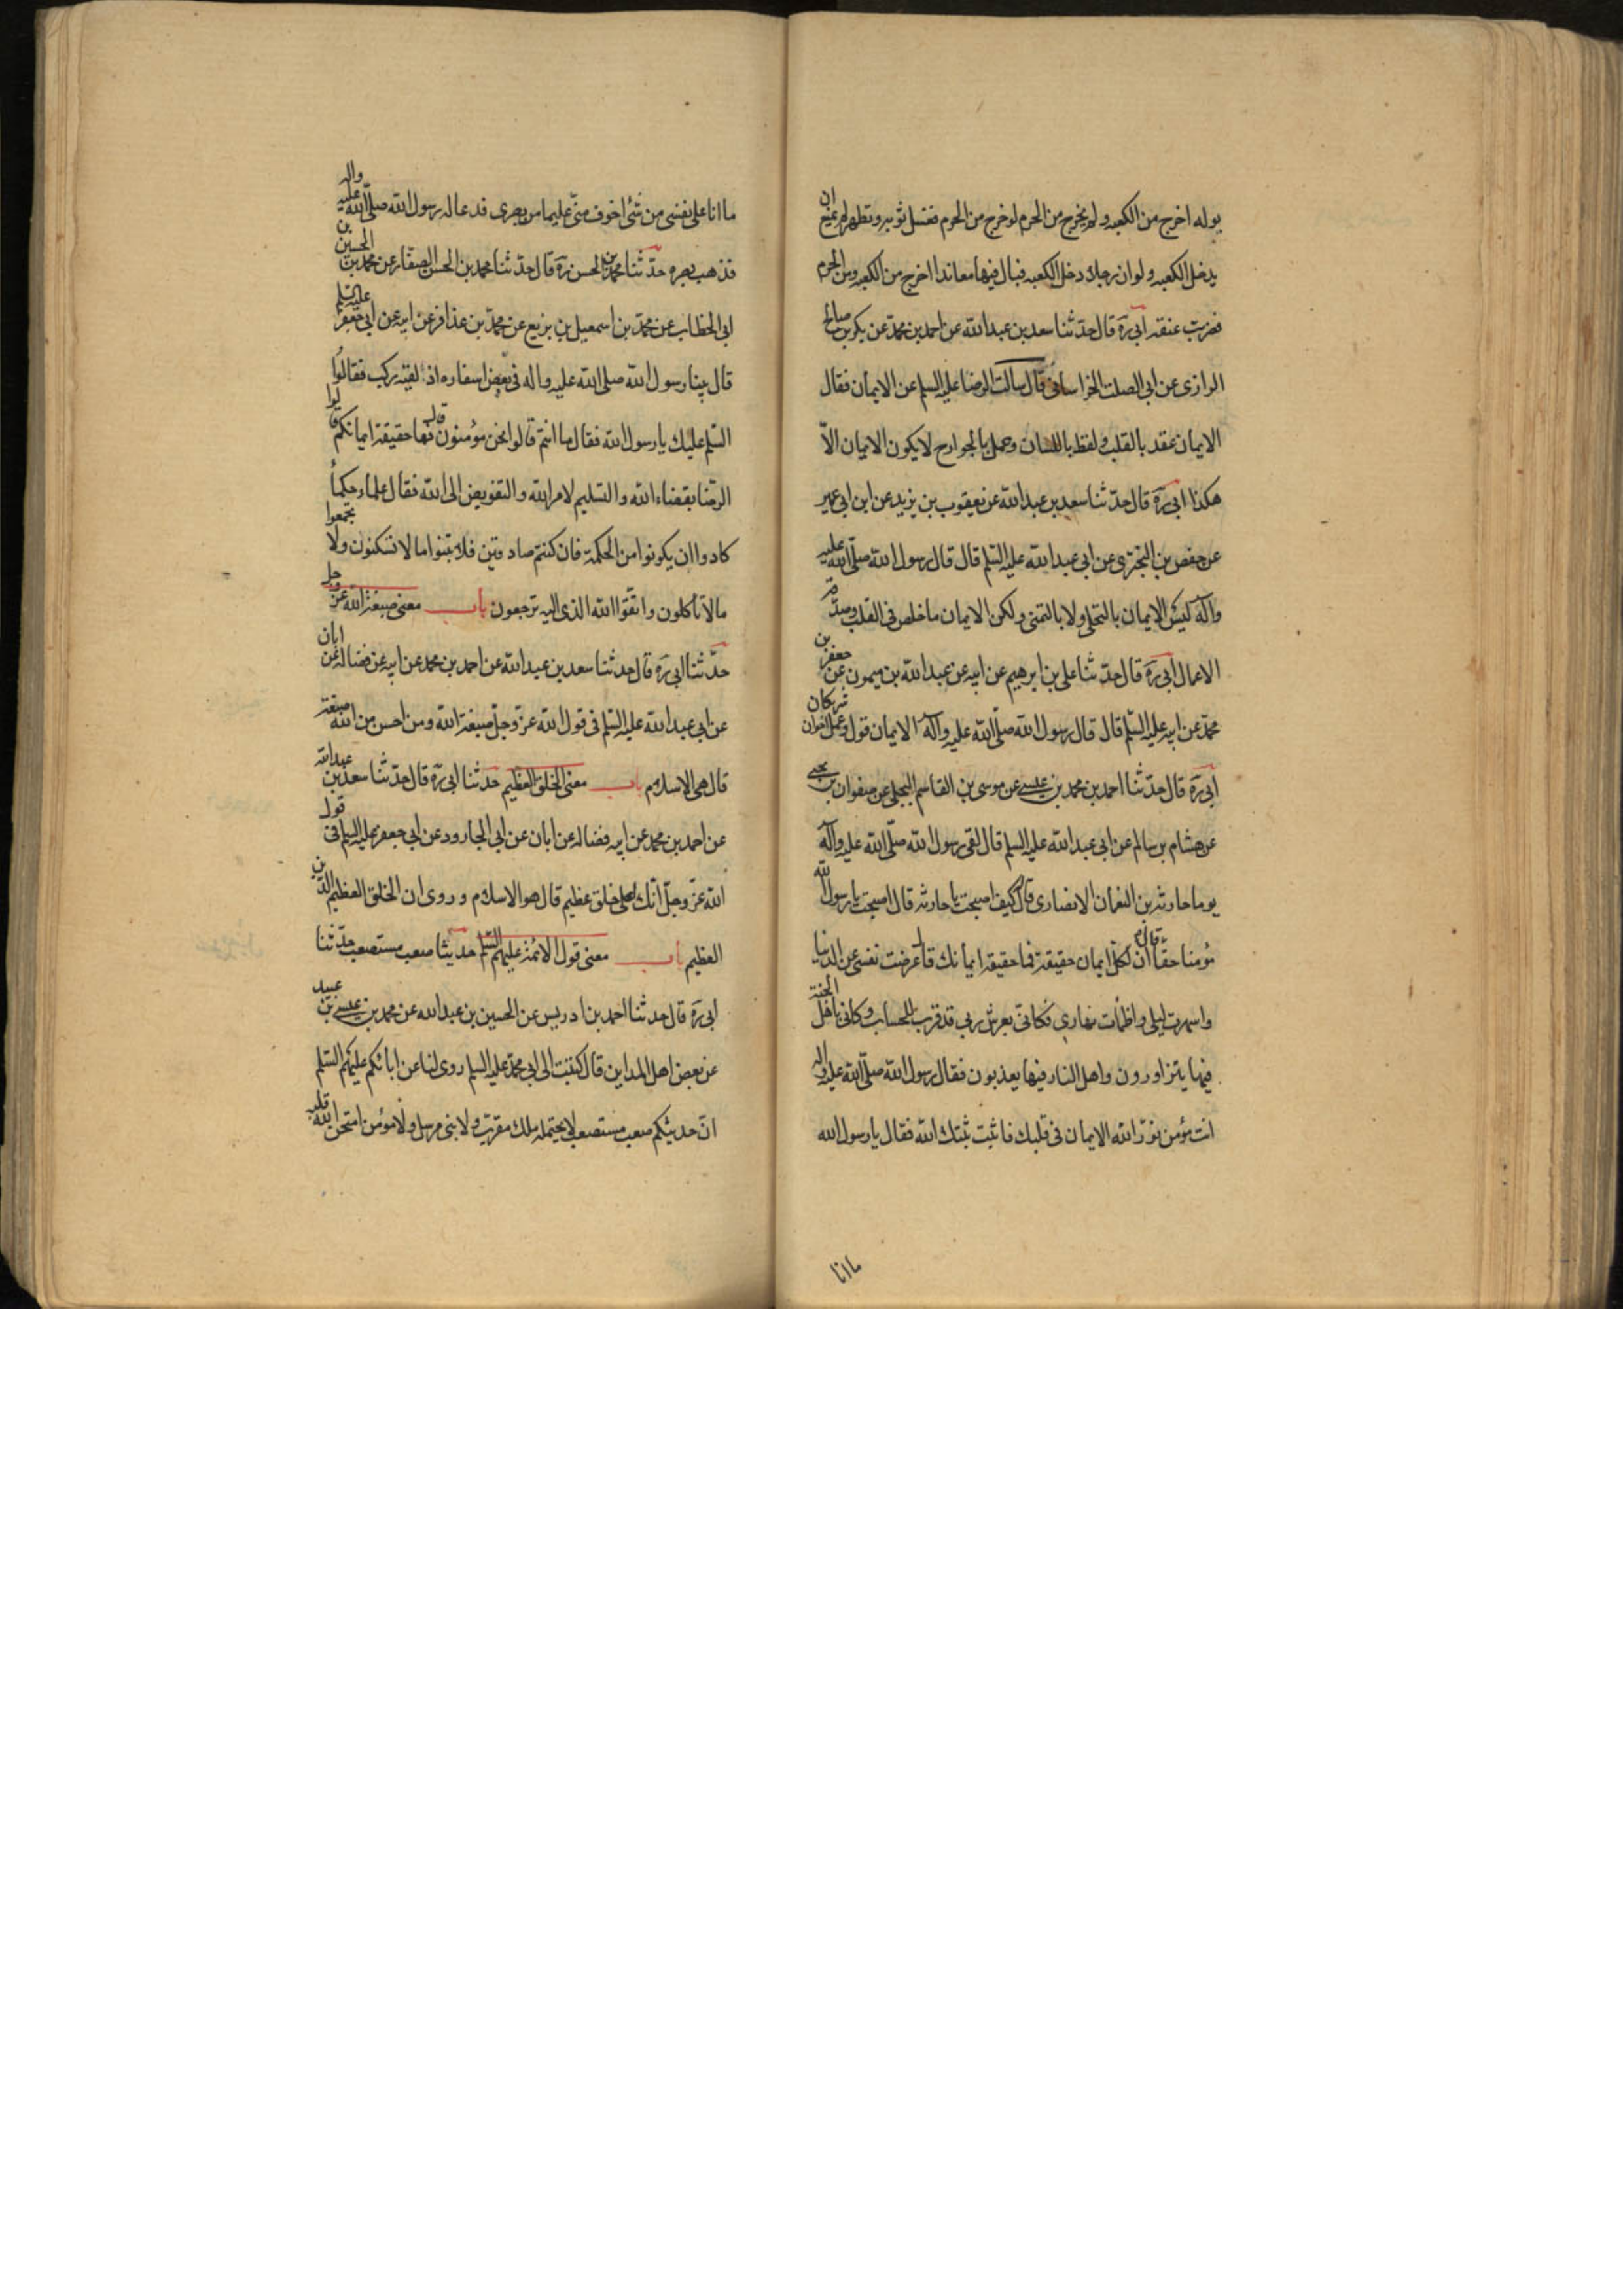 بوله اخرج من الكعبه ولم يخرج من الحرم لو خرج من الحرم فغسل ثوبه وتطهر لم يمنع ان
يدخل الكعبه ولو ان رجلا دخل الكعبه فبال فيها معاندا اخرج من الكعبه ومن الحرم
فضربت عنقه ابى ره قال حدّثنا سعد بن عبد الله عن احمد بن محمد عن بكر بن صالح
الرازى عن ابى الصلت الخراسانى قال سالت الرضا عليه السلم عن الايمان فقال
الايمان عقد بالقلب ولفظ باللسان وعمل بالجوارح لا يكون الايمان الاّ
هكذا ابى ره قال حدّثنا سعد بن عبد الله عن يعقوب بن يزيد عن ابن ابى عمير
عن حفص بن البخترى عن ابى عبد الله عليه السّلم قال قال رسول الله صلّى الله عليه
وآله ليس الايمان بالتحلى ولا بالتمنى ولكن الايمان ما خلص فى القلب وصدّقه
الاعمال ابى ره قال حدّثنا على بن ابرهيم عن ابيه عن عبد الله بن ميمون عن جعفر بن
محمّد عن ابيه عليه السّلم قال قال رسول الله صلّى الله عليه وآله الايمان قول وعمل اخوان شريكان
ابى ره قال حدّثنا احمد بن محمد بن عيسى عن موسى بن القاسم البجلى عن صفوان بن يحيى
عن هشام بن سالم عن ابى عبد الله عليه السلم قال لقى رسول الله صلّى الله عليه وآله
يوما حارثه بن النعمان الانصارى قال كيف اصبحت يا حارثه قال اصبحت يا رسول الله
مؤمنا حقّا قال ان لكلّ ايمان حقيقة فما حقيقة ايمانك قال عزفت نفسى عن الدنيا
واسهرت ليلى واظمأت نهارى فكانى بعرش ربى قد قرب للحساب وكانى باهل الجنة
فيها يتزاورون واهل النار فيها يعذبون فقال رسول الله صلّى الله عليه واله
انت مؤمن نوّر الله الايمان فى قلبك فاثبت ثبّتك الله فقال يا رسول الله
ما انا
ما انا على نفسى من شئ اخوف منّى عليها من بصرى فدعا له رسول الله صلّى الله عليه واله
فذهب بصره حدّثنا محمد بن الحسن ره قال حدّثنا محمد بن الحسن الصفار عن محمد بن الحسين بن
ابى الخطاب عن محمّد بن اسمعيل بن بزيع عن محمّد بن عذافر عن ابيه عن ابى جعفر عليه السلم
قال بينا رسول الله صلى الله عليه واله فى بعض اسفاره اذ لقيه ركب فقالوا
السّلم عليك يا رسول الله فقال ما انتم قالوا نحن مؤمنون قال فما حقيقة ايمانكم قالوا
الرضا بقضاء الله والتسليم لامر الله والتفويض الى الله فقال علماء حكماء
كادوا ان يكونوا من الحكمة فان كنتم صادقين فلا تبنوا ما لا تسكنون ولا تجمعوا
ما لا تأكلون واتّقوا الله الذى اليه ترجعون باب معنى صبغة الله عزّ وجل
حدّثنا ابى ره قال حدثنا سعد بن عبد الله عن احمد بن محمد عن ابيه عن فضاله عن ابان
عن ابى عبد الله عليه السّلم فى قول الله عزّ وجلّ صبغة الله ومن احسن من الله صبغة
قال هى الاسلام باب معنى الخلق العظيم حدثنا ابى ره قال حدّثنا سعد بن عبد الله
عن احمد بن محمد عن ابيه فضاله عن ابان عن ابى الجارود عن ابى جعفر عليه السلم فى قول
الله عزّ وجلّ انّك لعلى خلق عظيم قال هو الاسلام وروى ان الخلق العظيم الدين
العظيم باب معنى قول الائمة عليهم السّلم حديثنا صعب مستصعب حدّثنا
ابى ره قال حدثنا احمد بن ادريس عن الحسين بن عبد الله عن محمد بن عيسى بن عبيد
عن بعض اهل المداين قال كتبت الى ابى محمّد عليه السلم روى لنا عن ابائكم عليهم السّلم
انّ حديثكم صعب مستصعب لا يحتمله ملك مقرّب ولا نبى مرسل ولا مؤمن امتحن الله قلبه